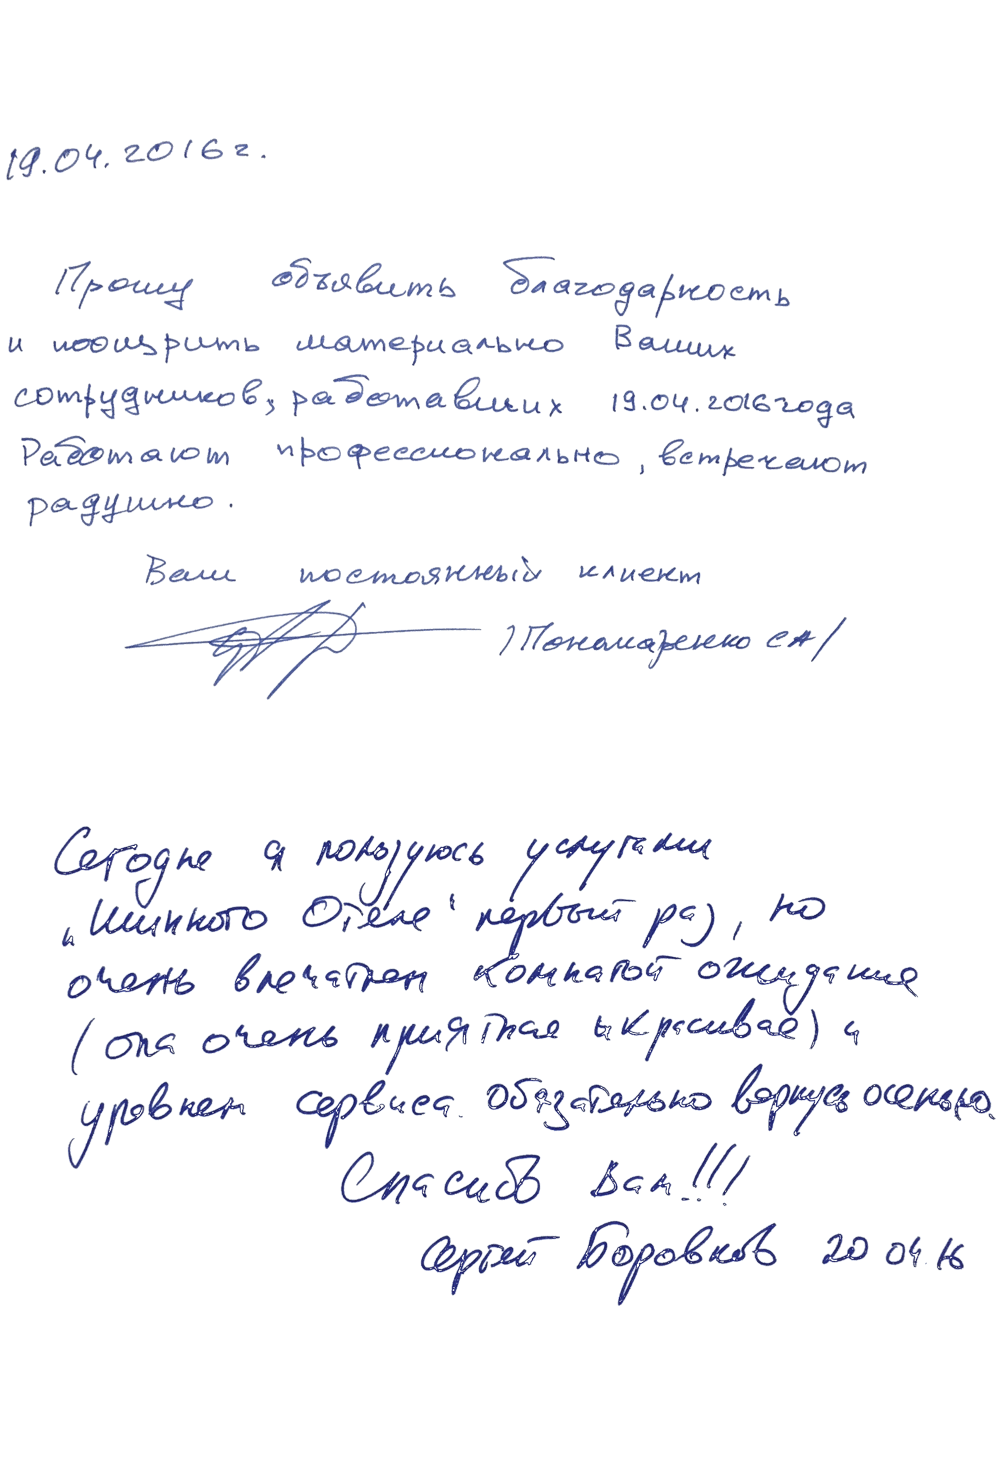 19.04.2016г.
Прошу объявить благодарность
и поощрить материально Ваших
сотрудников, работавших 19.04.2016года
Работают профессионально, встречают
радушно.
Ваш постоянный клиент
/Пономаренко СА/
Сегодня я пользуюсь услугами
„Шинного Отеля" первый раз, но
очень впечатлен комнатой ожидания
(она очень приятная и красивая) и
уровнем сервиса. Обязательно вернусь осенью.
Спасибо Вам!!!
Сергей Боровков 20 04 16